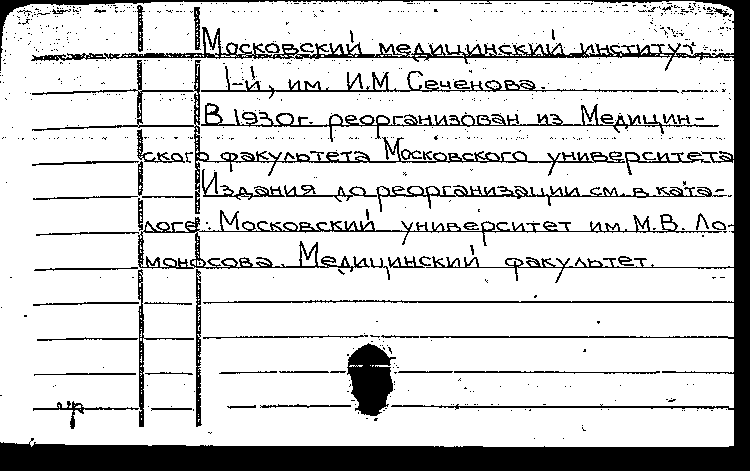 Московский медицинский институт,
1-й, им. И.М. Сеченова.
В 1930г. реорганизован из Медицин-
ского факультета Московского университета
Издания до реорганизации см. в ката-
логе: Московский университет им. М.В. Ло-
моносова. Медицинский факультет.